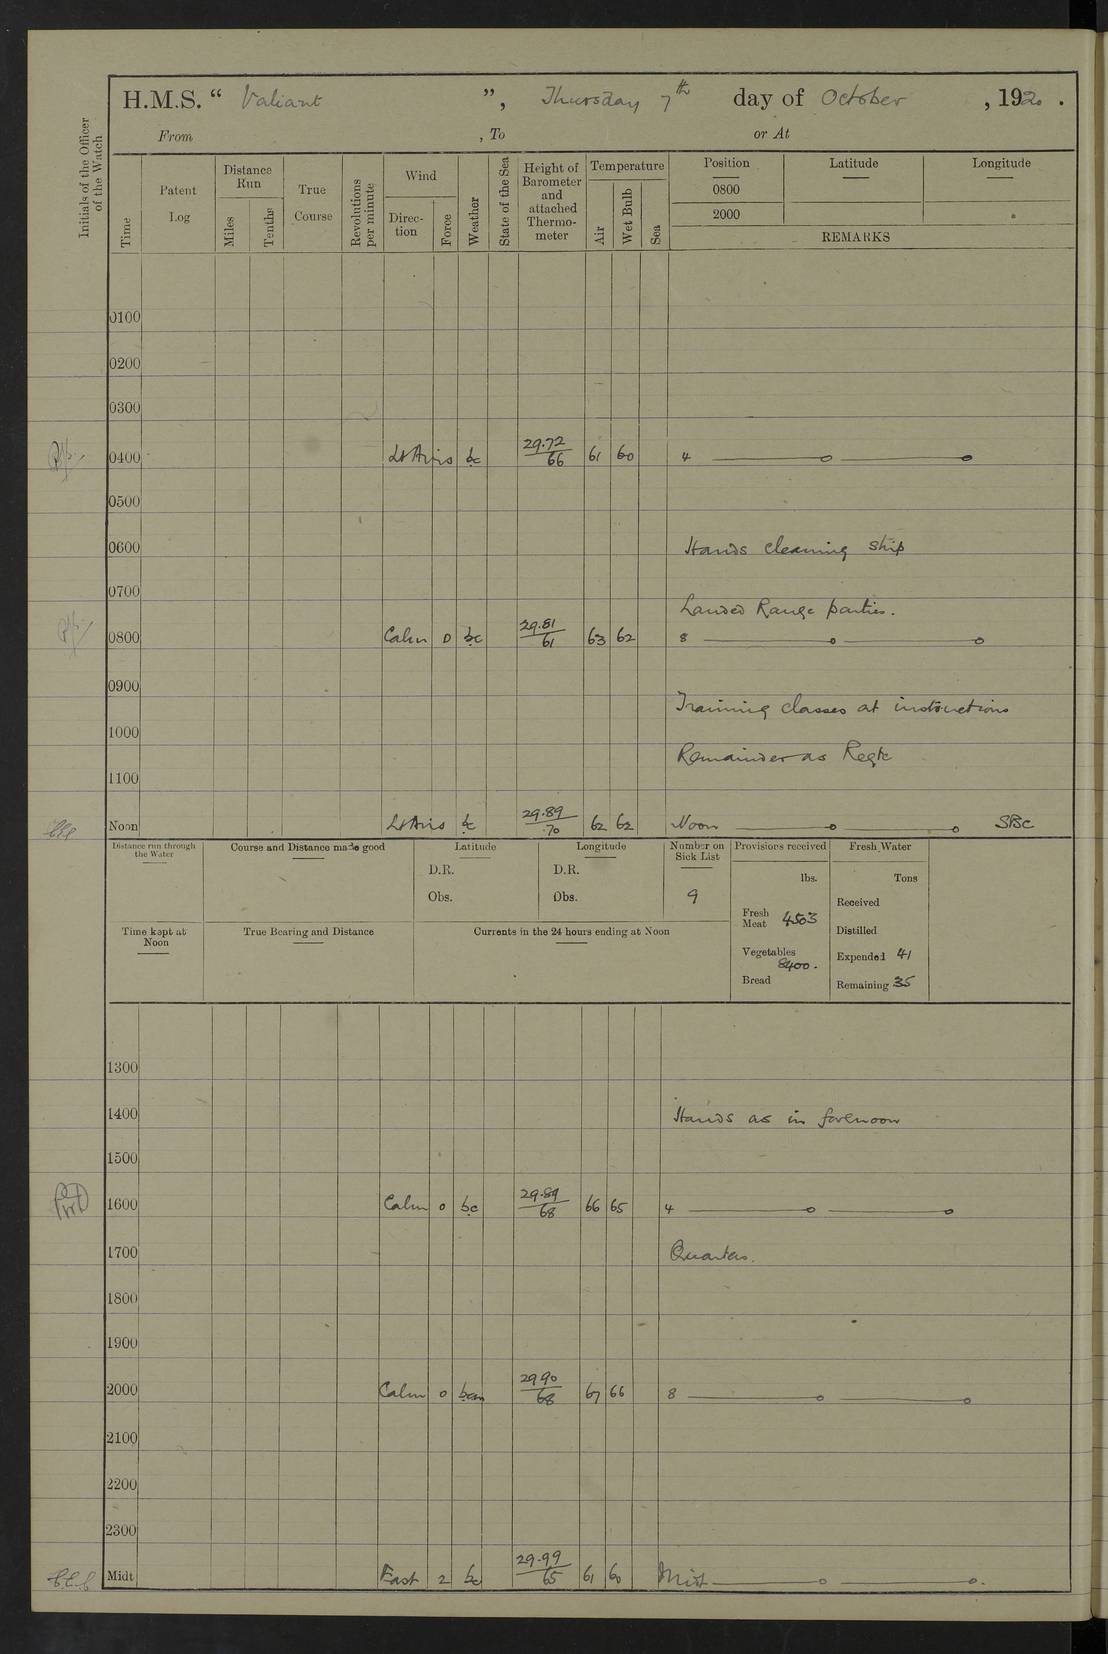 H.M.S. “ Valiant ”, Thursday 7th day of October , 1920 .
From , To or At
Initials of the Officer of the Watch
Time
Patent Log
Distance Run
Miles
Tenths
True Course
Revolutions per minute
Wind
Direc- tion
Force
Weather
State of the Sea
Height of Barometer and attached Thermo- meter
Temperature
Air
Wet Bulb
Sea
Position Latitude Longitude
0800
2000
REMARKS
0100
0200
0300
0400 Lt Airs bc 29.72/66 61 60 4
0500
0600 Hands cleaning ship
0700
Landed Range parties.
0800 Calm 0 bc 29.81/61 63 62 8
0900
Training classes at instructions
1000
Remainder as Reqte
1100
Noon Lt Airs bc 29.89/70 62 62 Noon SBC
Distance run through the Water
Course and Distance made good
Latitude
D.R.
Obs.
Longitude
D.R.
Obs.
Number on Sick List
9
Provisions received
lbs.
Fresh Meat 4503
Vegetables 8400.
Bread
Fresh Water
Tons
Received
Distilled
Expended 41
Remaining 35
Time kept at Noon
True Bearing and Distance
Currents in the 24 hours ending at Noon
1300
1400 Hands as in forenoon
1500
1600 Calm 0 bc 29.89/68 66 65 4
1700 Quarters.
1800
1900
2000 Calm 0 bcm 29 90/68 67 66 8
2100
2200
2300
Midt East 2 bc 29.99/65 61 60 Midt